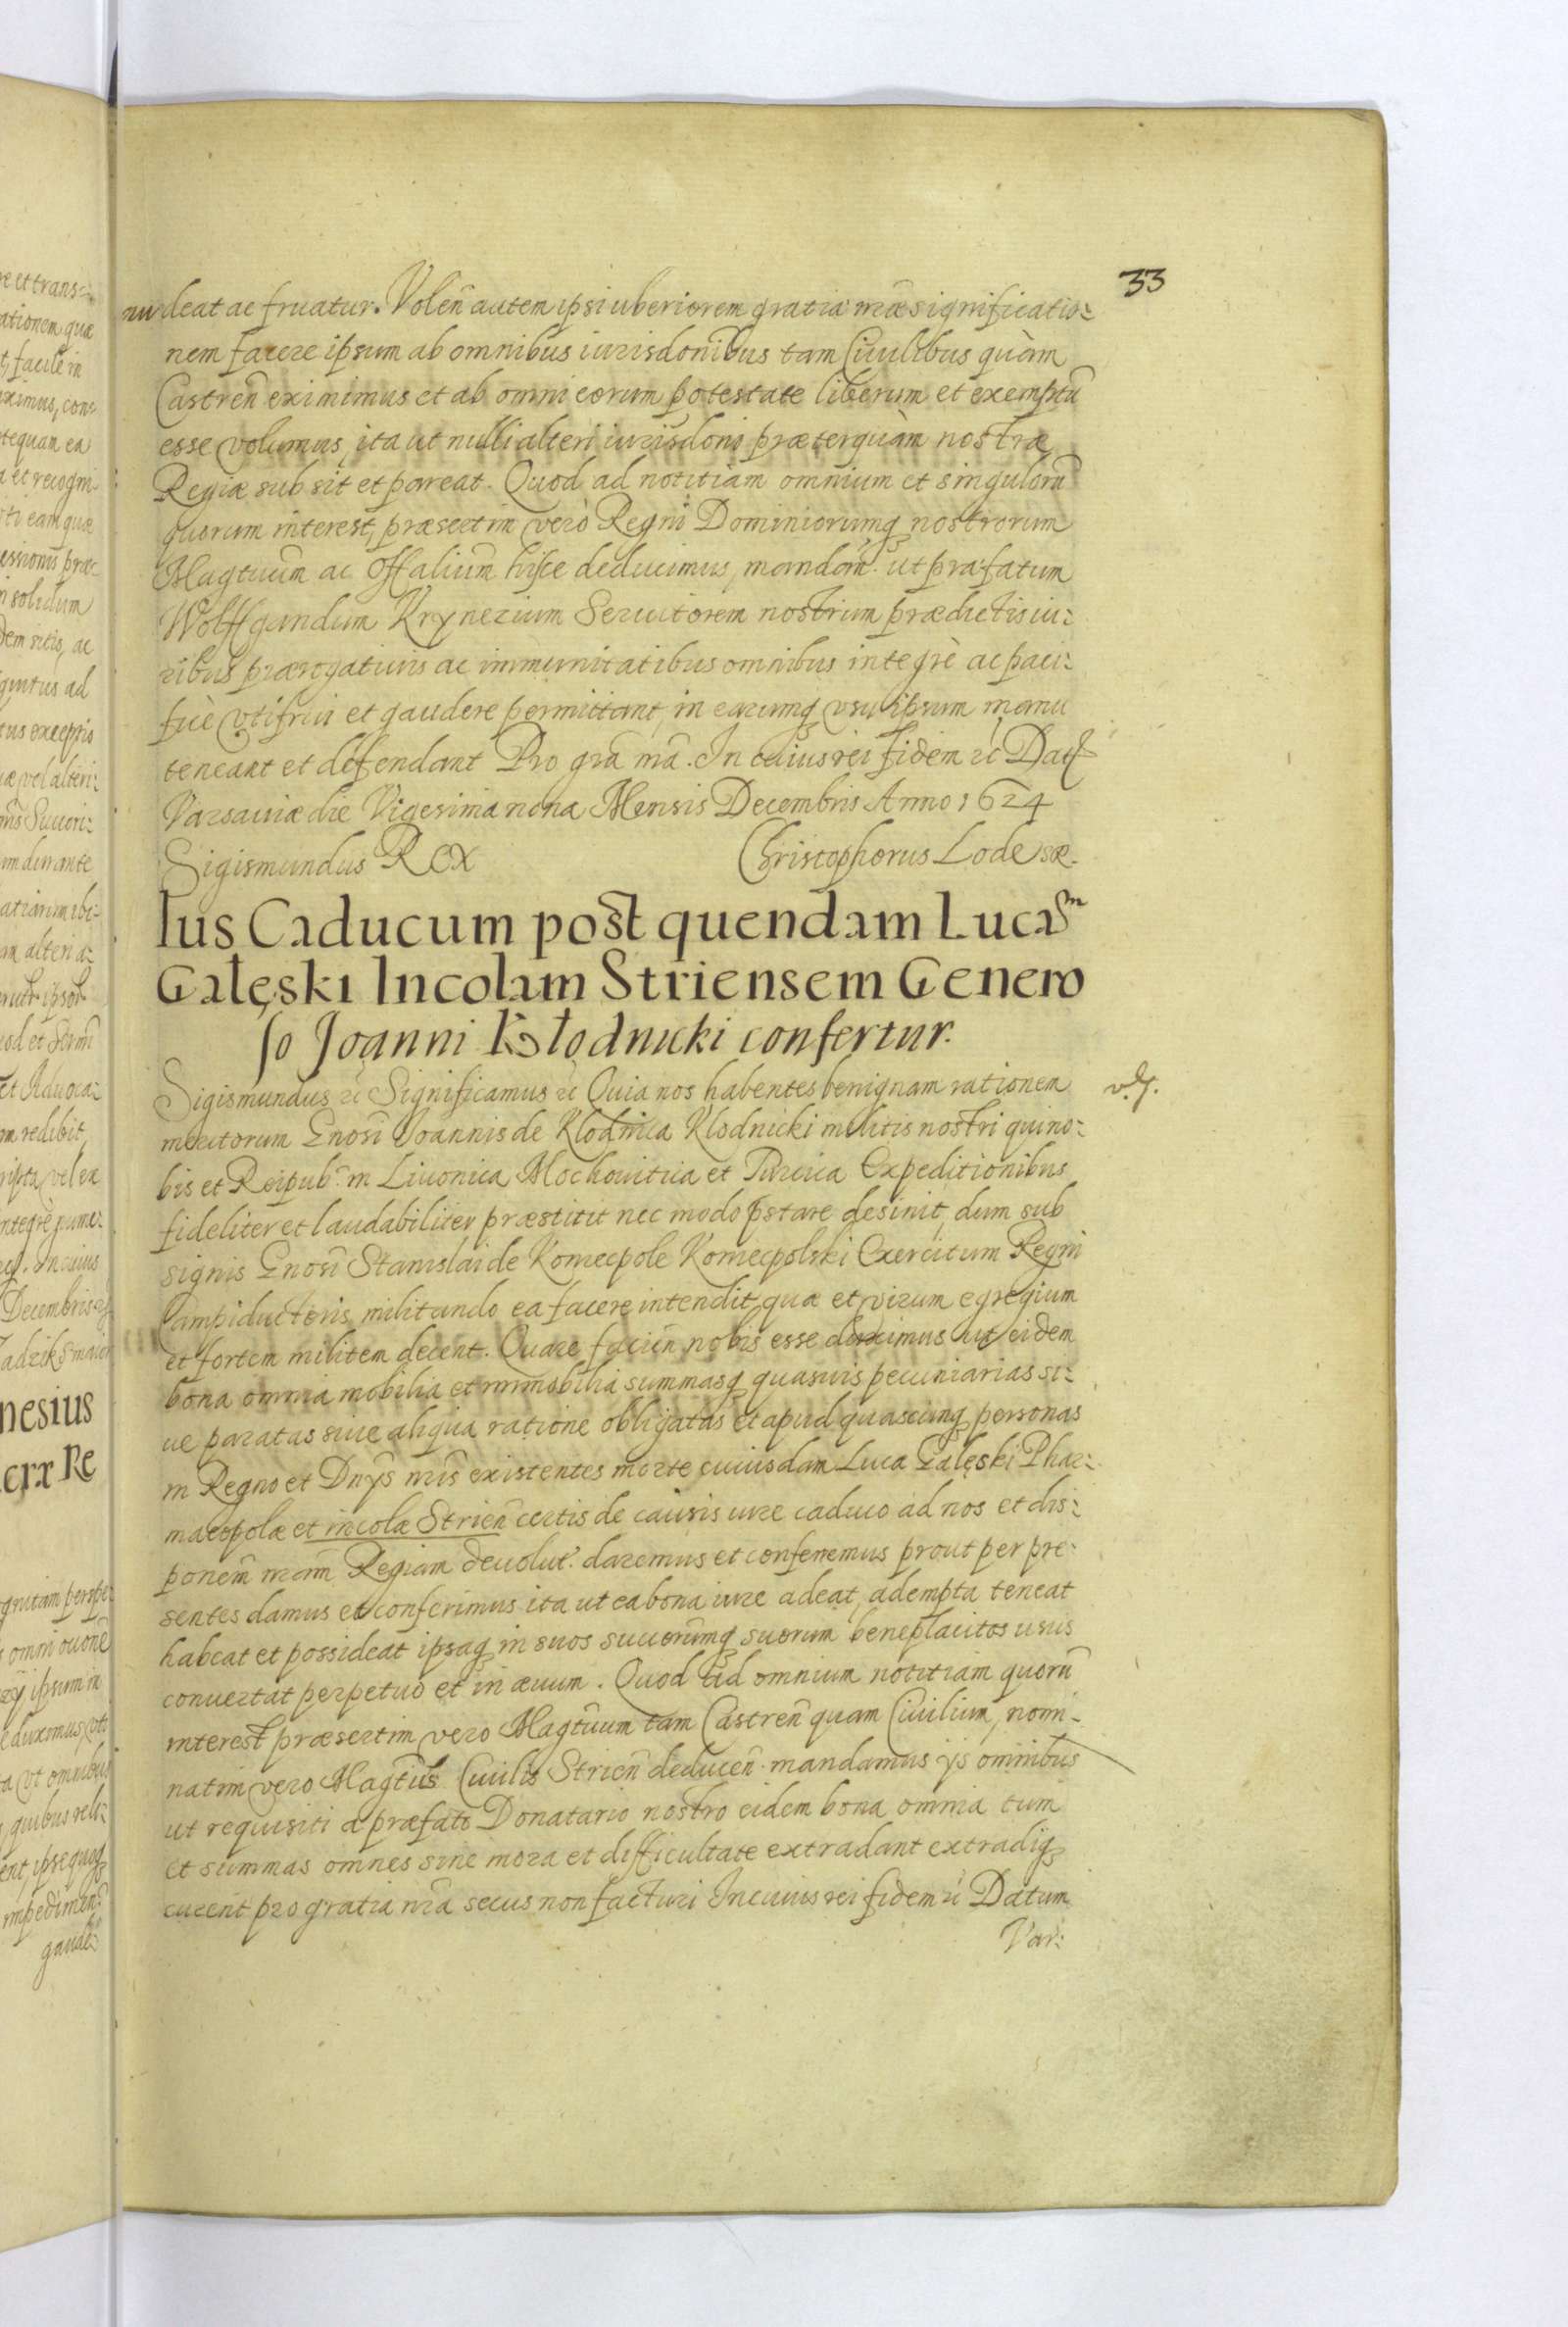 33
deat ac fruatur. Volen̄ autem ipsi uberiorem gratiæ nr̃æ significatio:
nem facere ipsum ab omnibus iurisdonibus tam Civilibus quàm
Castren̄ eximimus et ab omni eorum potestate liberum et exemptū
esse volumus, ita ut nulli alteri iurisdoni præterquàm nostræ
Regiæ subsit et pareat. Quod ad notitiam omnium et singulorū
quorum interest, præsertim verò Regni Dominiorumq nostrorum
Magtuum̄ ac Offalium̄ hisce deducimus, mandam̄. ut præfatum
Wolffgandum Krynerium Servitorem nostrum prædictis iu:
ribus prærogativis ac immunitatibus omnibus integrè ac paci:
ficè uti frui et gaudere permittant, in earumq usu ipsum manu
teneant et defendant Pro gr̃a nr̃a. In cuius rei fidem ⁊c̄ Dat
Varsaviæ die Vigesima nona Mensis Decembris Anno 1624
Sigismundus Rex Christophorus Lode
Ius Caducum post quendam Lucasm
Gałęski Incolam Striensem Genero
so Joanni Kłodnicki confertur.
Sigismundus ⁊c̄ Significamus ⁊c̄ Quia nos habentes benignam rationem
meritorum Gnosi Joannis de Klodnica Klodnicki militis nostri qui no:
bis et Reipub: in Livonica Mochovitica et Turcica Expeditionibus
fideliter et laudabiliter præstitit nec modo pstare desinit, dum sub
signis Gnosi Stanislai de Koniecpole Koniecpolski Exercituum Regni
Campiductoris militando ea facere intendit quæ et virum egregium
et fortem militem decent. Quare facien̄ nobis esse duximus ut eidem
bona omnia mobilia et immobilia summasq quasvis pecuniarias si:
ve paratas sive aliqua ratione obligatas et apud quascunq personas
in Regno et Dnÿs nr̃is existentes morte cuiusdam Luca Gałęski Phar:
macopolæ et incolæ Strien̄ certis de causis iure caduco ad nos et dis:
ponem̄ nram̄ Regiam devolut. daremus et conferremus prout per præ:
sentes damus et conferimus ita ut ea bona iure adeat, adempta teneat
habeat et possideat ipsaq in suos succorumq suorum beneplacitos usus
convertat perpetuò et in ævum. Quod ad omnium notitiam quorū
interest præsertim vero Magtuum̄ tam Castren̄ quam Civilium, nomi-
natim vero Magtūs Civilis Strien̄ deducen̄. mandamus ÿs omnibus
ut requisiti a præfato Donatario nostro eidem bona omnia tum
et summas omnes sine mora et difficultate extradant extradiq
curent pro gratia nr̃a secus non facturi In cuius rei fidem ⁊c̄ Datum
Var: